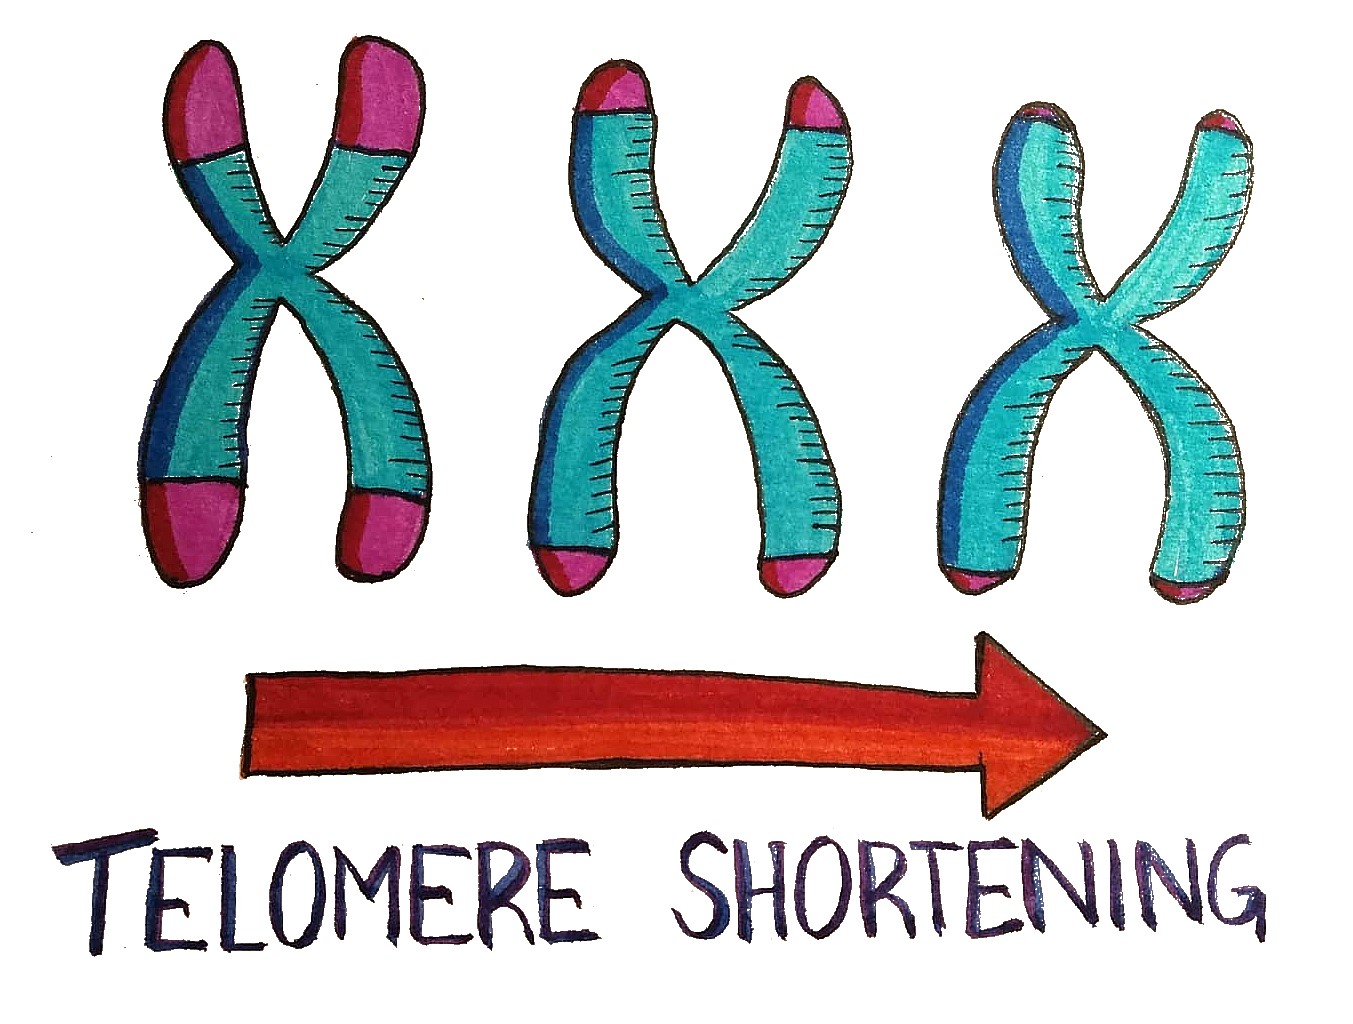 TELOMERE SHORTENING